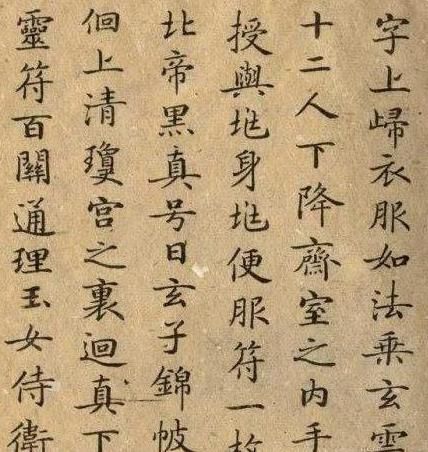 字上㱕衣服如法乗玄雲
十二人下降齋室之内手
授與兆身兆便服符一枚
北帝黑真号曰玄子錦帔
佪上清瓊宮之裏迴真下
靈符百關通理玉女侍衛